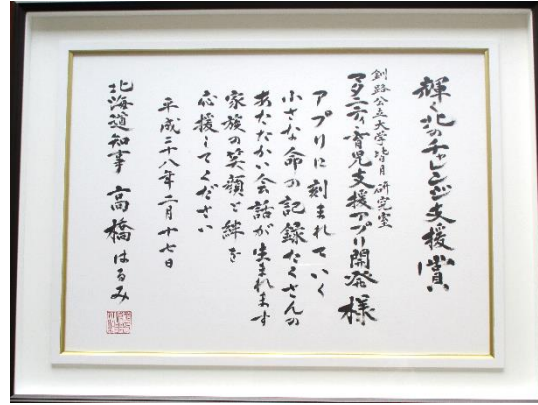 輝く北のチャレンジ支援賞
釧路公立大学皆月研究室
マタニティ・育児支援アプリ開発様
アプリに刻まれていく
小さな命の記録たくさんの
あたたかい会話が生まれます
家族の笑顔と絆を
応援してください
平成二十八年二月十七日
北海道知事 高橋はるみ